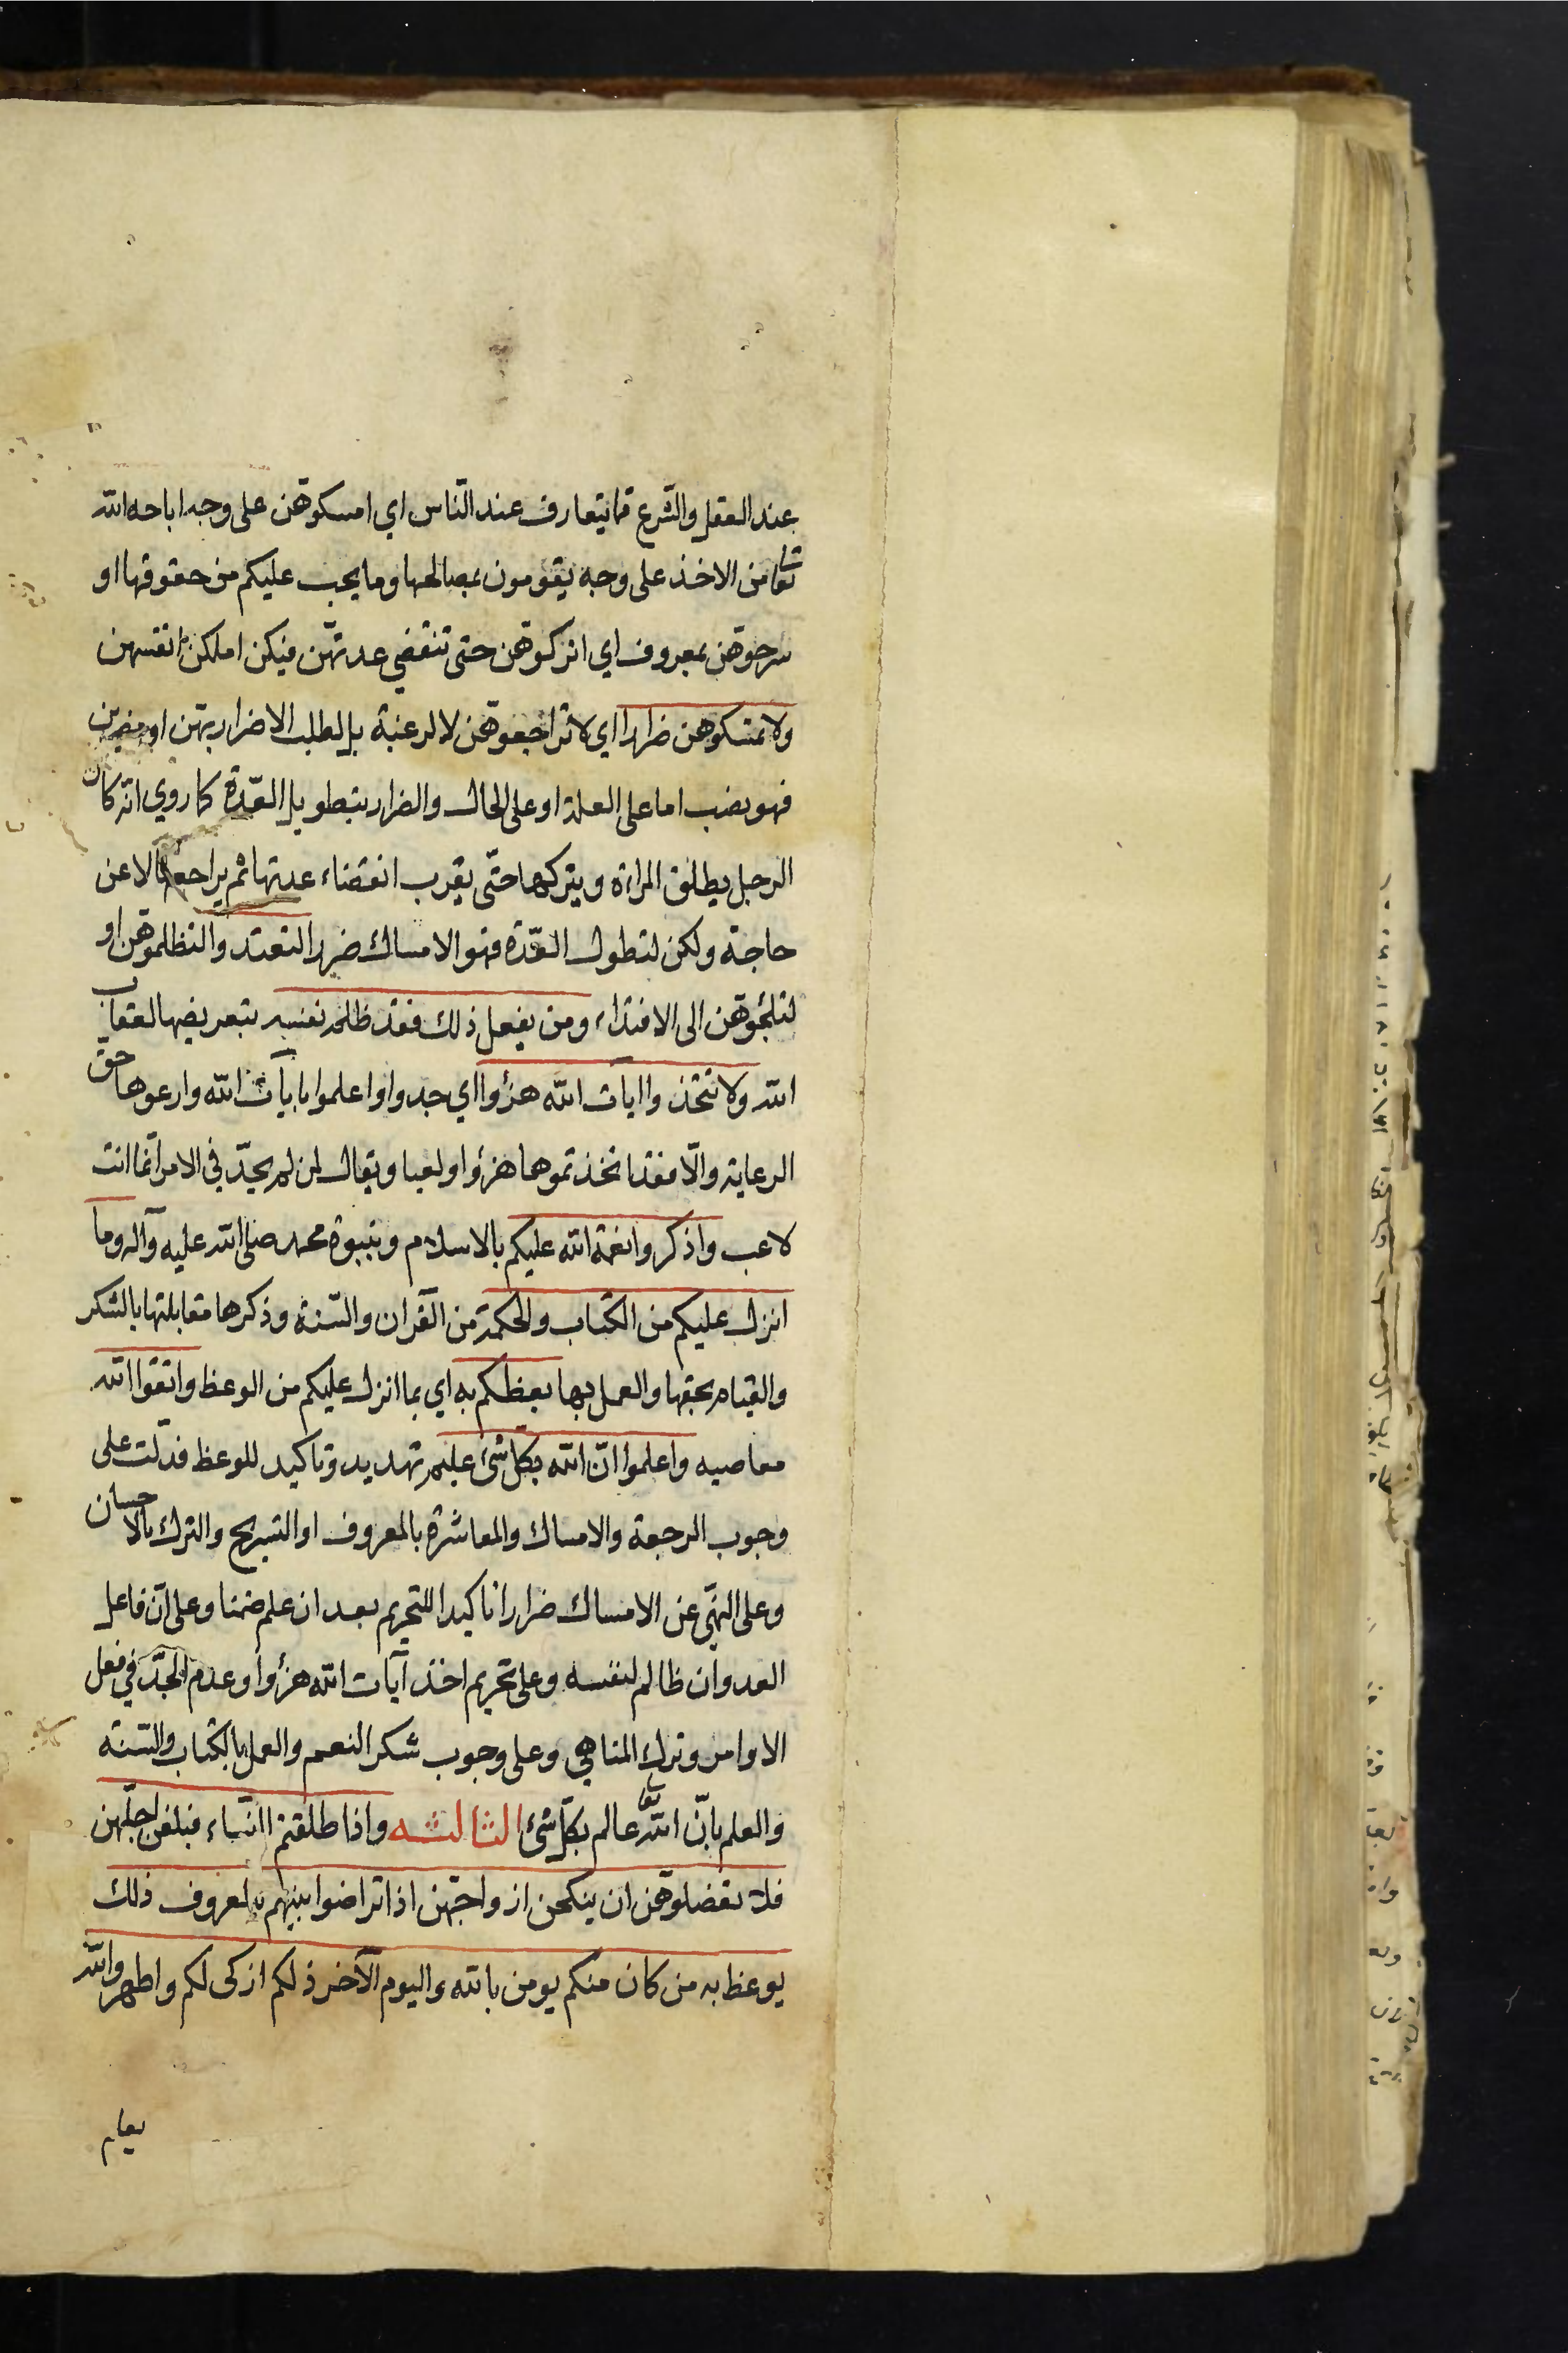 عند العقل والشرع مما يتعارف عند الناس اي امسكوهن على وجه اباحه الله
تعا من الاخذ على وجه يقومون بمصالحها وما يجب عليكم من حقوقها او
سرحوهن بمعروف اي اتركوهن حتى تنقضي عدتهن فيكن املكن انفسهن
ولا تمسكوهن ضرارا اي لا تراجعوهن لا لرغبة بل لطلب الاضرار بهن او مضرين
فهو نصب اما على العلة او على الحال والضرار بتطويل العدة كما روي انه كان
الرجل يطلق المراة ويتركها حتى يقرب انقضاء عدتها ثم يراجعها لا عن
حاجة ولكن لتطول العدة فهو الامساك ضررا لتعتدوا لتظلموهن او
لتلجؤهن الى الافتداء ومن يفعل ذلك فقد ظلم نفسه بتعريضها لعقاب
الله ولا تتخذوا ايات الله هزؤا اي جدوا واعملوا بايات الله وارعوها حق
الرعاية والا فقد اتخذتموها هزؤا ولعبا ويقال لمن لم يجد في الامر انما انت
لاعب واذكروا نعمة الله عليكم بالاسلام وبنبوة محمد صلى الله عليه وآله وما
انزل عليكم من الكتاب والحكمة من القران والسنة وذكرها مقابلتها بالشكر
والقيام بحقها والعمل بها يعظكم به اي بما انزل عليكم من الوعظ واتقوا الله
معاصيه واعلموا ان الله بكل شئ عليم تهديد وتاكيد للوعظ فدلت على
وجوب الرجعة والامساك والمعاشرة بالمعروف او التسريح والترك بالاحسان
وعلى النهي عن الامساك ضرارا تاكيدا للتحريم بعد ان علم ضمنا وعلى ان فاعل
العدوان ظالم لنفسه وعلى تحريم اخذ آيات الله هزؤا وعدم الجد في فعل
الاوامر وترك المناهي وعلى وجوب شكر النعم والعمل بالكتاب والسنة
والعلم بان الله تعا عالم بكل شئ الثالثه واذا طلقتم النساء فبلغن اجلهن
فلا تعضلوهن ان ينكحن ازواجهن اذا تراضوا بينهم بالمعروف ذلك
يوعظ به من كان منكم يومن بالله واليوم الآخر ذلكم ازكى لكم واطهر والله
يعلم